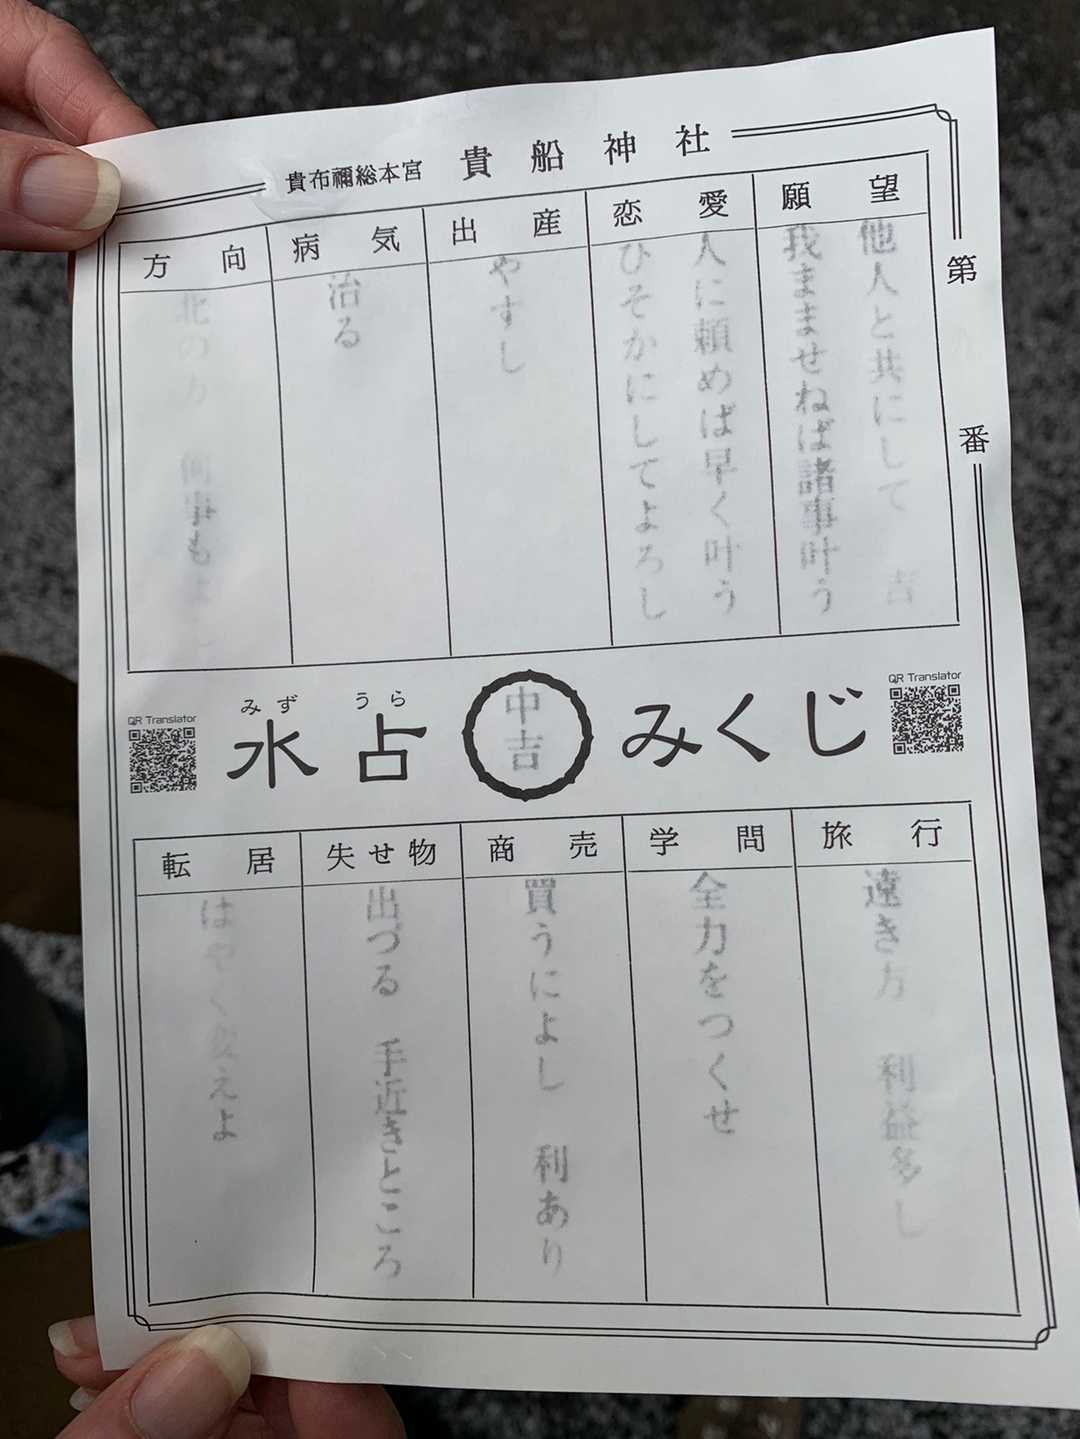 貴布禰総本宮 貴船神社
第 九 番
願望
他人と共にして 吉
我まませねば諸事叶う
恋愛
人に頼めば早く叶う
ひそかにしてよろし
出産
やすし
病気
治る
方向
北の方 何事もよし
QR Translator
みずうら
水占
中吉
みくじ
QR Translator
旅行
遠き方 利益多し
学問
全力をつくせ
商売
買うによし 利あり
失せ物
出づる 手近きところ
転居
はやく変えよ